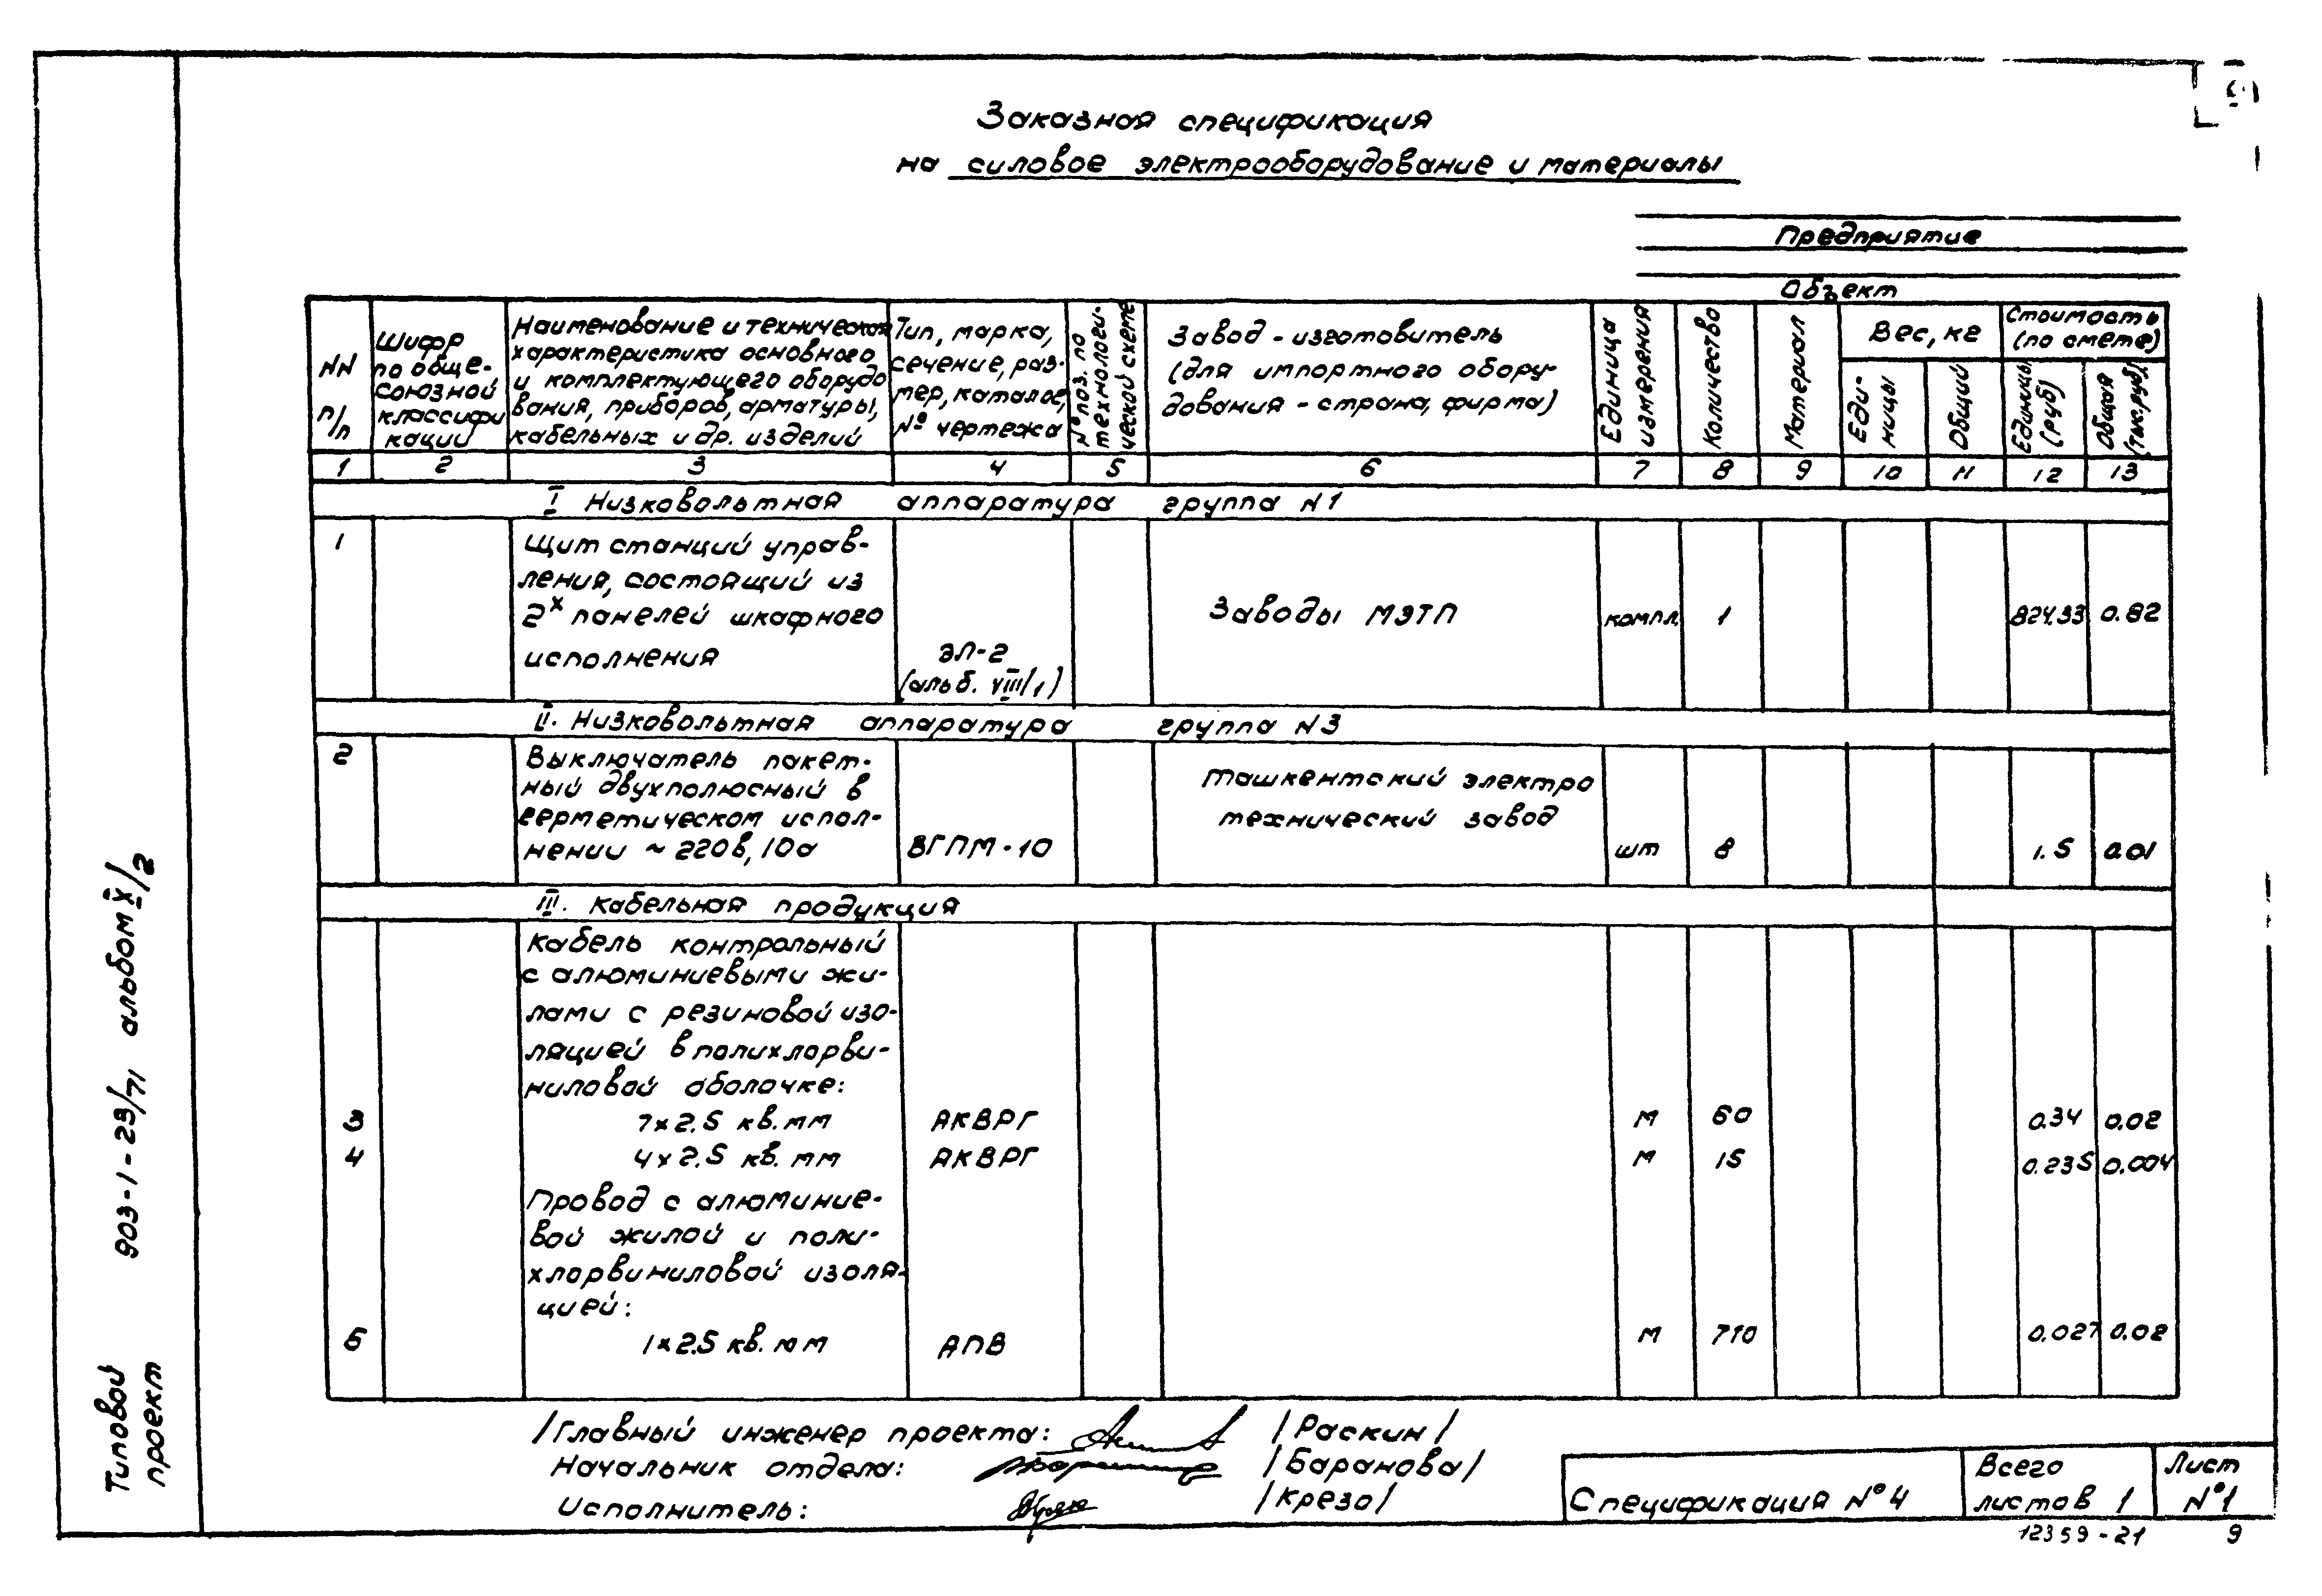 Заказная спецификация
на силовое электрооборудование и материалы
Предприятие
Объект
NN п/п
Шифр по обще-союзной классифи кации
Наименование и техническая
характеристика основного
и комплектующего оборудо
вания, приборов, арматуры,
кабельных и др. изделий
Тип, марка,
сечение, раз-
мер, каталог,
№ чертежа
№ поз. по
технологи-
ческой схеме
Завод - изготовитель
(для импортного обору-
дования - страна, фирма)
Единица
измерения
Количество
Материал
Вес, кг
Еди-
ницы
Общий
Стоимость
(по смете)
Единицы
(руб)
Общая
(тыс.руб)
1 2 3 4 5 6 7 8 9 10 11 12 13
I Низковольтная аппаратура группа N1
1
Щит станций управ-
ления, состоящий из
2х панелей шкафного
исполнения
ЭЛ-2
(альб. VIII/1)
Заводы МЭТП
компл. 1 824.33 0.82
II. Низковольтная аппаратура группа N3
2
Выключатель пакет-
ный двухполюсный в
герметическом испол-
нении ~ 220в, 10а
ВГПМ-10
Ташкентский электро
технический завод
шт 8 1.5 0.01
III. Кабельная продукция
Кабель контрольный
с алюминиевыми жи-
лами с резиновой изо-
ляцией в полихлорви-
ниловой оболочке:
3 7x2.5 кв.мм АКВРГ м 60 0.34 0.02
4 4x2.5 кв.мм АКВРГ м 15 0.235 0.004
Провод с алюминие-
вой жилой и поли-
хлорвиниловой изоля-
цией:
5 1x2.5 кв.мм АПВ м 710 0.027 0.02
/Главный инженер проекта: /Раскин/
Начальник отдела: /Баранова/
Исполнитель: /Крезо/
Спецификация №4
Всего
листов 1
Лист
№1
12359-21 9
Типовой
проект
903-1-23/71 альбом X/2